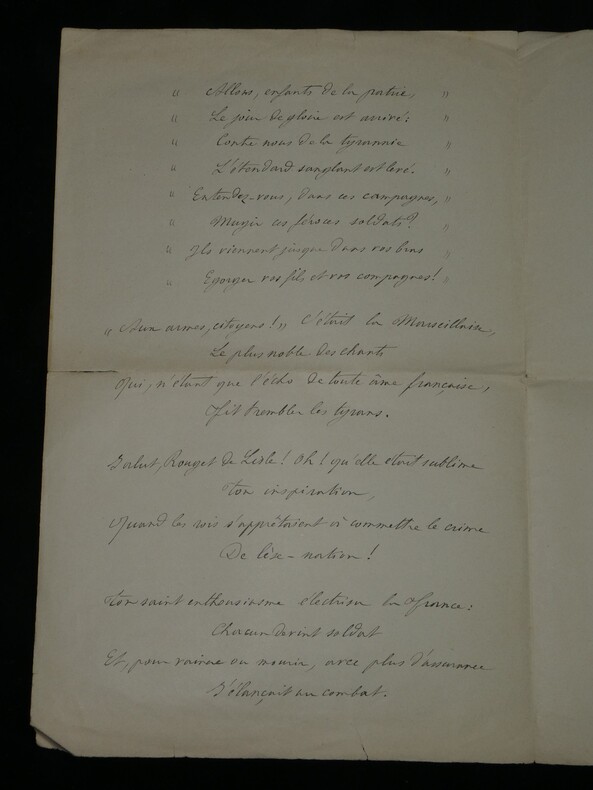 " Allons, enfants de la patrie, "
" Le jour de gloire est arrivé: "
" Contre nous de la tyrannie "
" L'étendard sanglant est levé. "
" Entendez-vous, dans ces campagnes, "
" Mugir ces féroces soldats? "
" Ils viennent jusque dans vos bras "
" Egorger vos fils et vos compagnes! "
" Aux armes, citoyens! " C'était la Marseillaise,
Le plus noble des chants
Qui, n'étant que l'écho de toute âme française,
Fit trembler les tyrans.
Salut, Rouget de Lisle! Oh! qu'elle était sublime
Ton inspiration,
Quand les rois s'apprêtaient à commettre le crime
De lèze-nation!
Ton saint enthousiasme électrisa la France:
Chacun devint soldat
Et, pour vaincre ou mourir, avec plus d'assurance
S'élançait au combat.